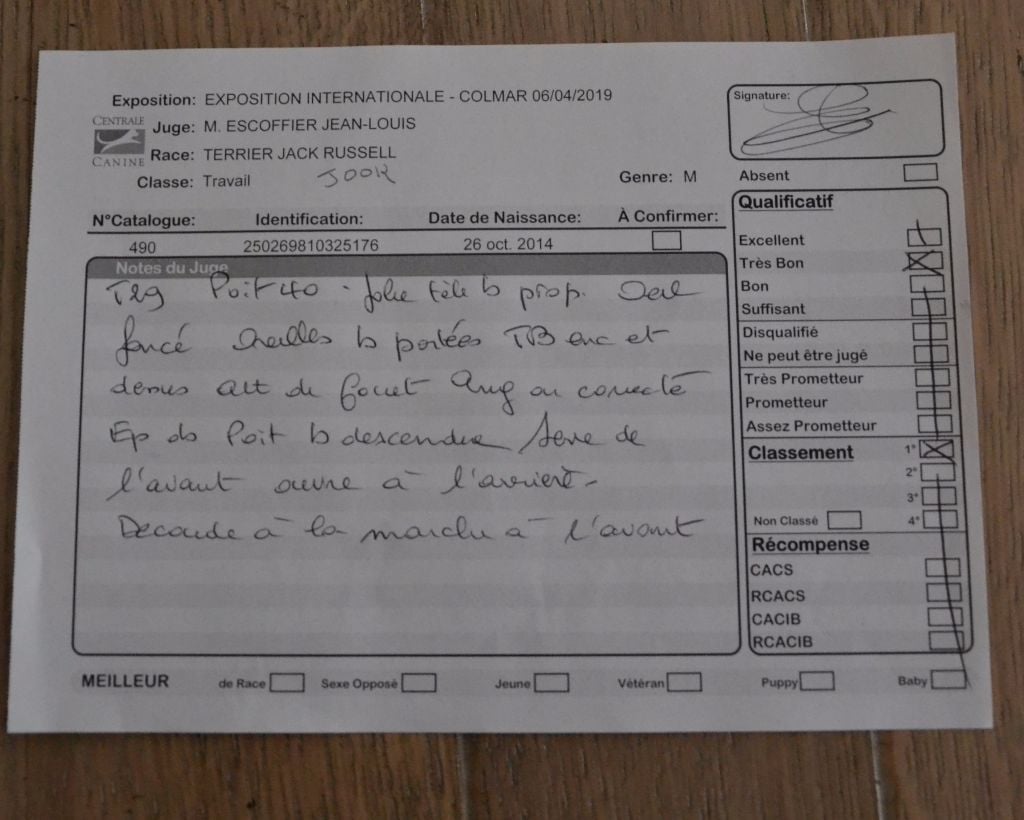 Exposition: EXPOSITION INTERNATIONALE - COLMAR 06/04/2019
Signature:
CENTRALE
CANINE
Juge: M. ESCOFFIER JEAN-LOUIS
Race: TERRIER JACK RUSSELL
Classe: Travail
Genre: M
Absent
Qualificatif
N°Catalogue: Identification: Date de Naissance: À Confirmer:
490 250269810325176 26 oct. 2014
Excellent
Très Bon
Bon
Suffisant
Disqualifié
Ne peut être jugé
Très Prometteur
Prometteur
Assez Prometteur
Notes du Juge
T29 Poit 40 - Jolie tête b prop. Oeil
foncé Oreilles b portées TB enc et
dents att de fouet Ang av correcte
Ep do Poit b descendue Serre de
l'avant ouvre à l'arrière -
Decoude à la marche à l'avant
Classement 1°
2°
3°
Non Classé 4°
Récompense
CACS
RCACS
CACIB
RCACIB
MEILLEUR de Race Sexe Opposé Jeune Vétéran Puppy Baby